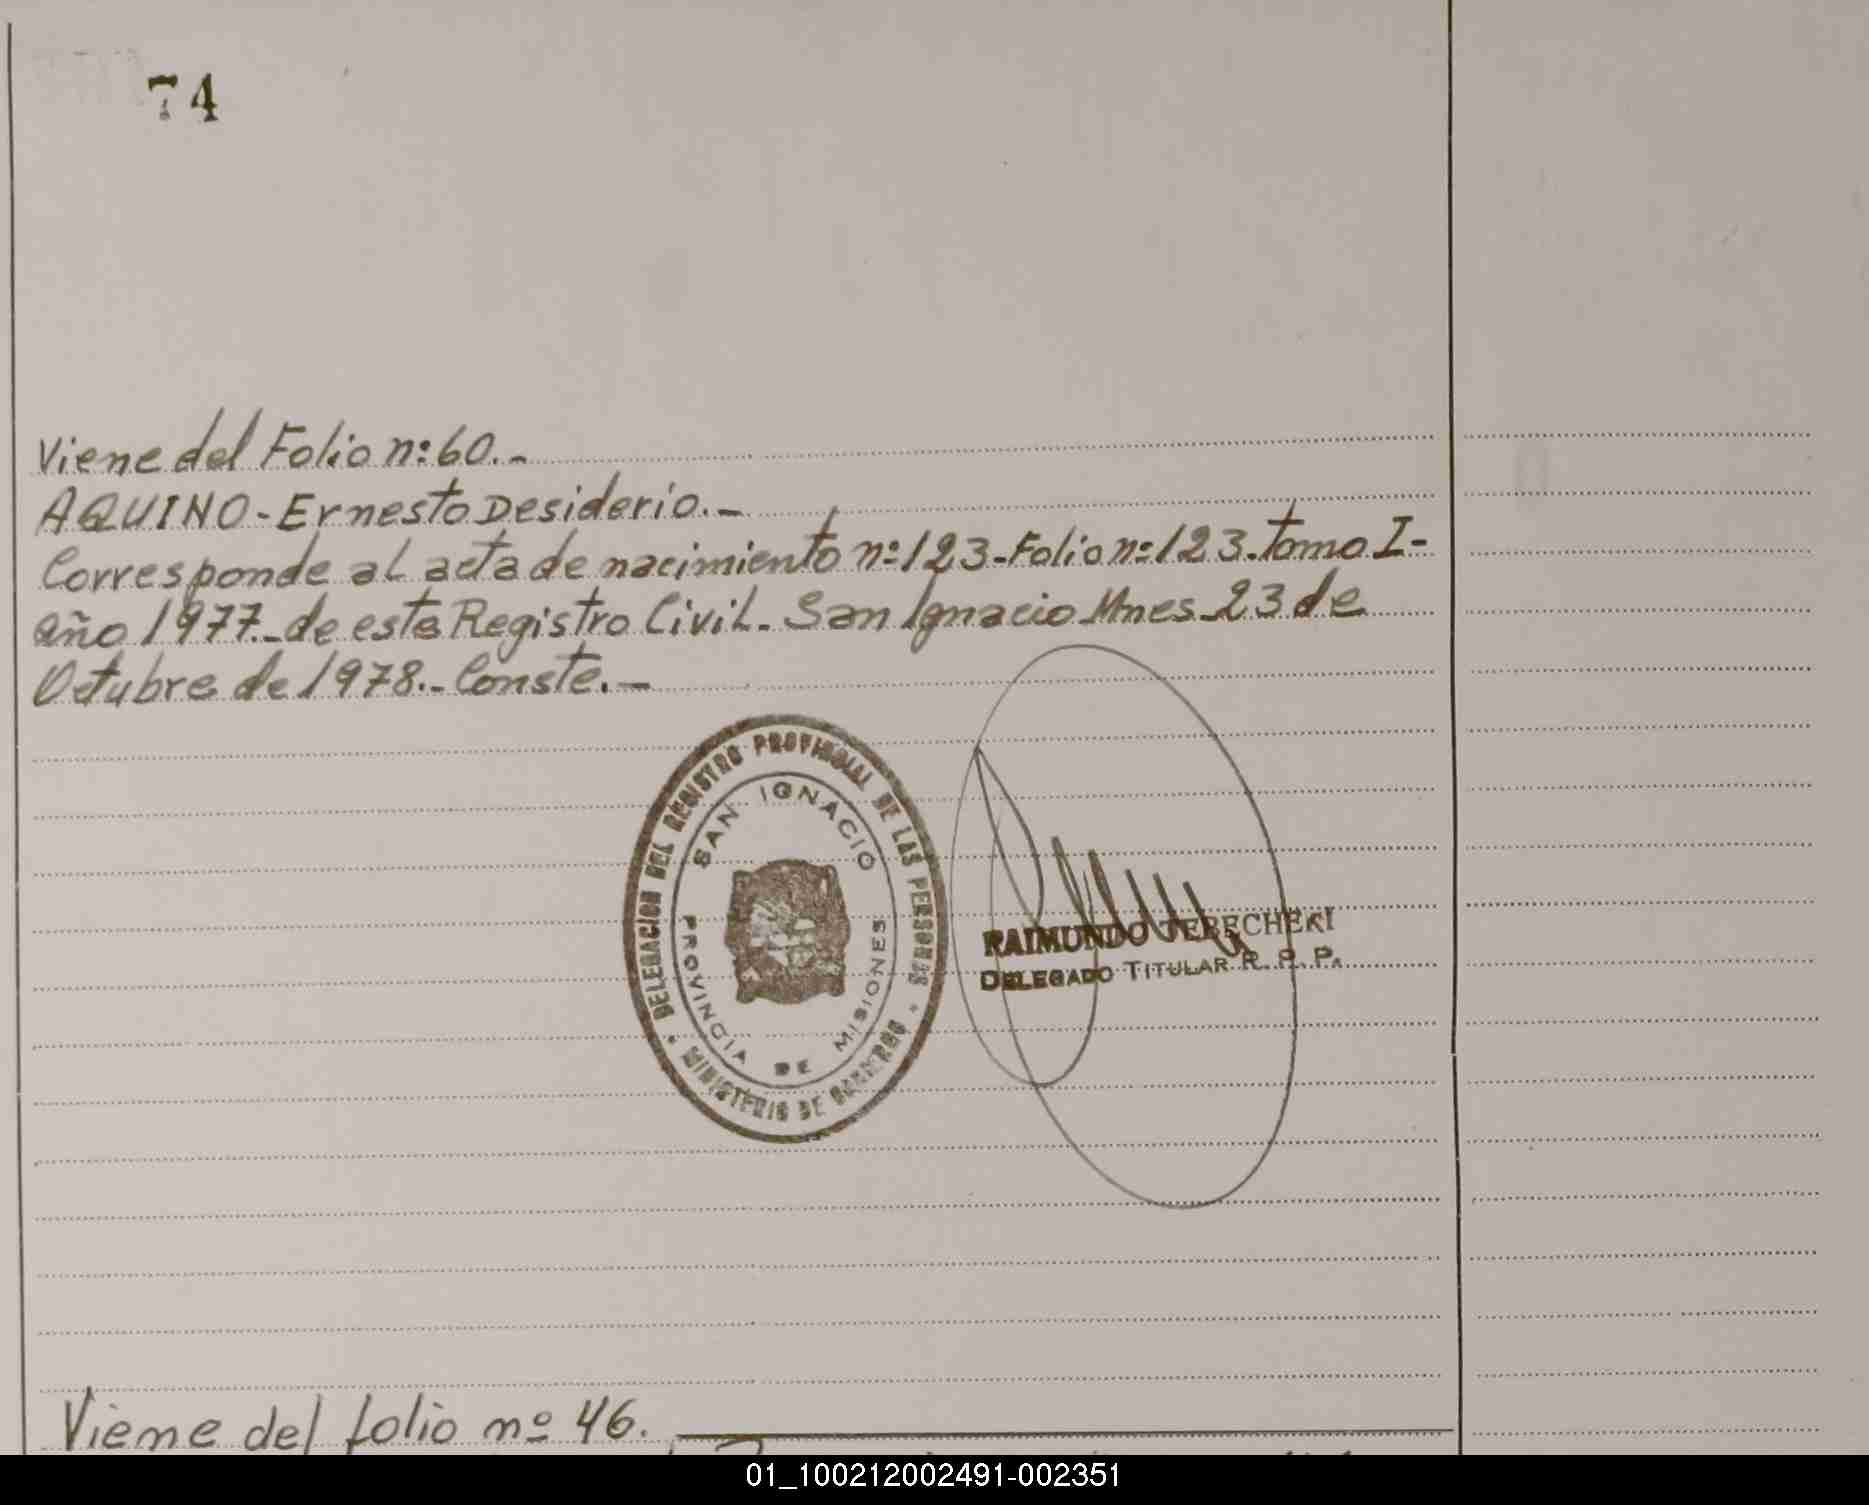 74
Viene del Folio n: 60.-
AQUINO - Ernesto Desiderio.-
Corresponde al acta de nacimiento n: 123 - Folio n: 123. Tomo I -
año 1977.- de este Registro Civil. San Ignacio Mnes. 23 de
Octubre de 1978.- Conste.-
DELEGACION DEL REGISTRO PROVINCIAL DE LAS PERSONAS
SAN IGNACIO
PROVINCIA DE MISIONES
MINISTERIO DE GOBIERNO
RAIMUNDO TERECHEKI
DELEGADO TITULAR R. P. P.
Viene del folio nº 46.
01_100212002491-002351